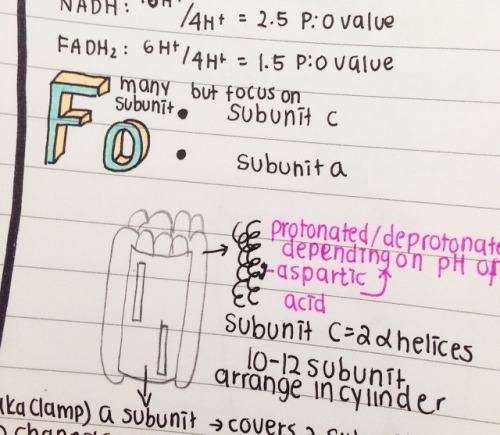 NADH: 10H⁺/4H⁺ = 2.5 P:O value
FADH₂: 6H⁺/4H⁺ = 1.5 P:O value
Fo
many but focus on
subunit • subunit c
• subunit a
protonated/deprotonate
depending on pH of
aspartic
acid
subunit c=2α helices
10-12 subunit
arrange in cylinder
(aka clamp) a subunit → covers 2